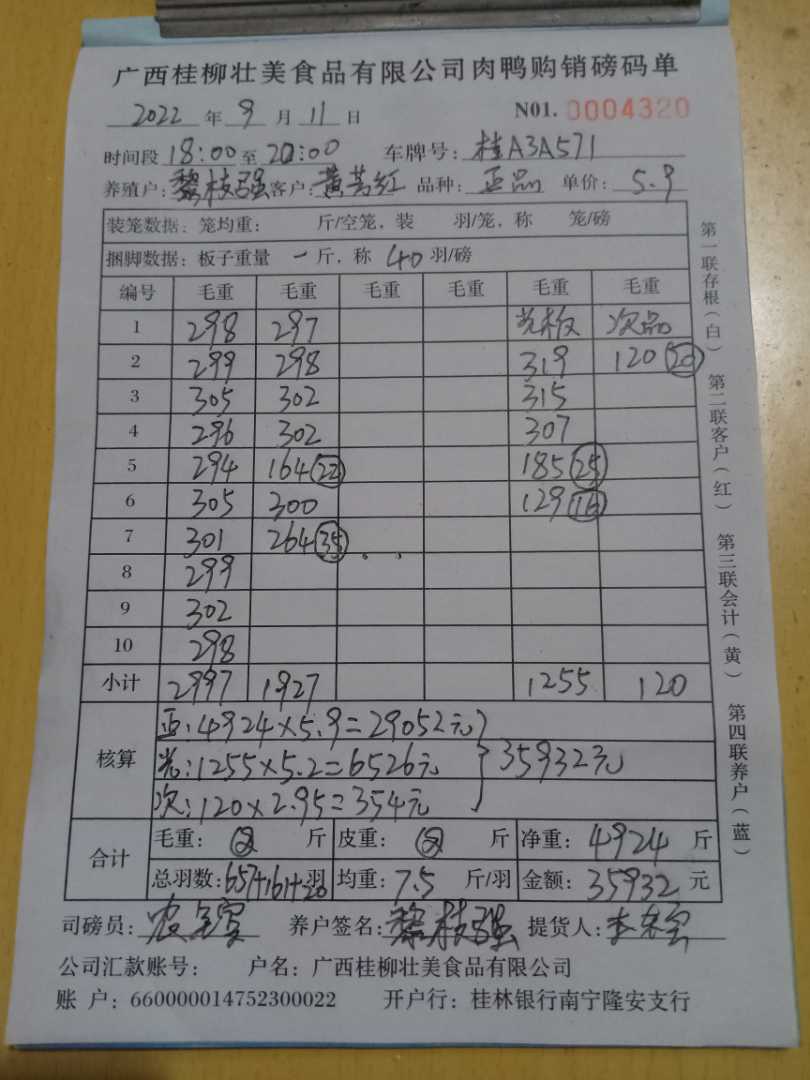 广西桂柳壮美食品有限公司肉鸭购销磅码单
2022 年 9 月 11 日 N01. 0004320
时间段 18:00 至 20:00 车牌号: 桂A3A571
养殖户: 黎枝强 客户: 黄芳红 品种: 正品 单价: 5.9
装笼数据: 笼均重: 斤/空笼, 装 羽/笼, 称 笼/磅
捆脚数据: 板子重量 一 斤, 称 40 羽/磅
编号 毛重 毛重 毛重 毛重 毛重 毛重
1 298 297 光板 次品
2 299 298 319 120 (20)
3 305 302 315
4 296 302 307
5 294 164 (22) 185 (25)
6 305 300 129 (16)
7 301 264 (35)
8 299
9 302
10 298
小计 2997 1927 1255 120
核算
正: 4924×5.9=29052元
光: 1255×5.2=6526元 } 35932元
次: 120×2.95=354元
合计
毛重: 斤 皮重: 斤 净重: 4924 斤
总羽数: 657+161+20 羽 均重: 7.5 斤/羽 金额: 35932 元
司磅员: 养户签名: 黎枝强 提货人:
公司汇款账号: 户名: 广西桂柳壮美食品有限公司
账 户: 660000014752300022 开户行: 桂林银行南宁隆安支行
第一联存根(白)
第二联客户(红)
第三联会计(黄)
第四联养户(蓝)